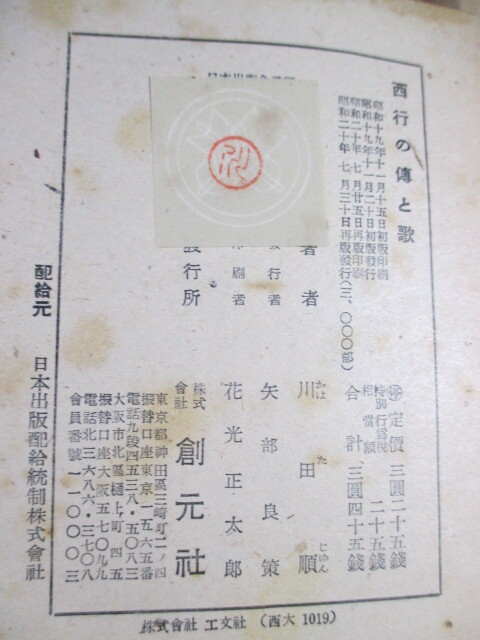 西行の傳と歌
昭和十九年十一月十五日初版印刷
昭和十九年十一月二十日初版發行
昭和二十年七月廿五日再版印刷
昭和二十年七月三十日再版發行(三、〇〇〇部)
定價 三圓二十五錢
特別行爲税相當額 二十五錢
合計 三圓四十五錢
著者 川田順
かはたじゅん
發行者 矢部良策
印刷者 花光正太郎
發行所 株式會社 創元社
東京都神田區三崎町二ノ四
振替口座東京一五六五番
電話九段四五三八・五〇八三
大阪市北區樋上町四五
振替口座大阪五七〇九九
電話北三七八六・三七〇八
會員番號一一〇〇〇三
配給元 日本出版配給統制株式會社
株式會社 工文社 (西大 1019)